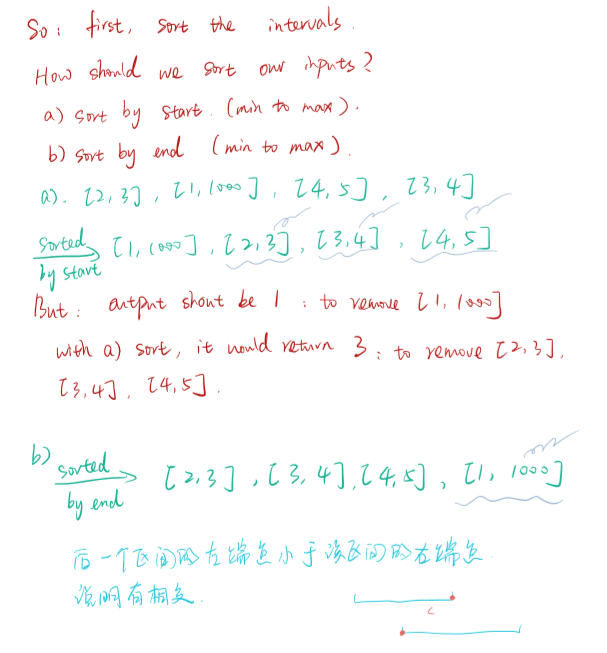 So: first, sort the intervals.
How should we sort our inputs?
a) sort by start. (min to max).
b) sort by end (min to max).
a). [2,3], [1,1000], [4,5], [3,4]
sorted by start [1,1000], [2,3], [3,4], [4,5]
But: output shout be 1: to remove [1,1000]
with a) sort, it would return 3: to remove [2,3],
[3,4], [4,5].
b) sorted by end [2,3], [3,4], [4,5], [1,1000]
后一个区间的左端点小于该区间的右端点
说明有相交.